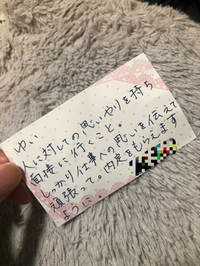 人に対しての思いやりを持ち
面接に行くこと。
しっかり仕事への思いを伝えて
頑張って。内定をもらえます
ように